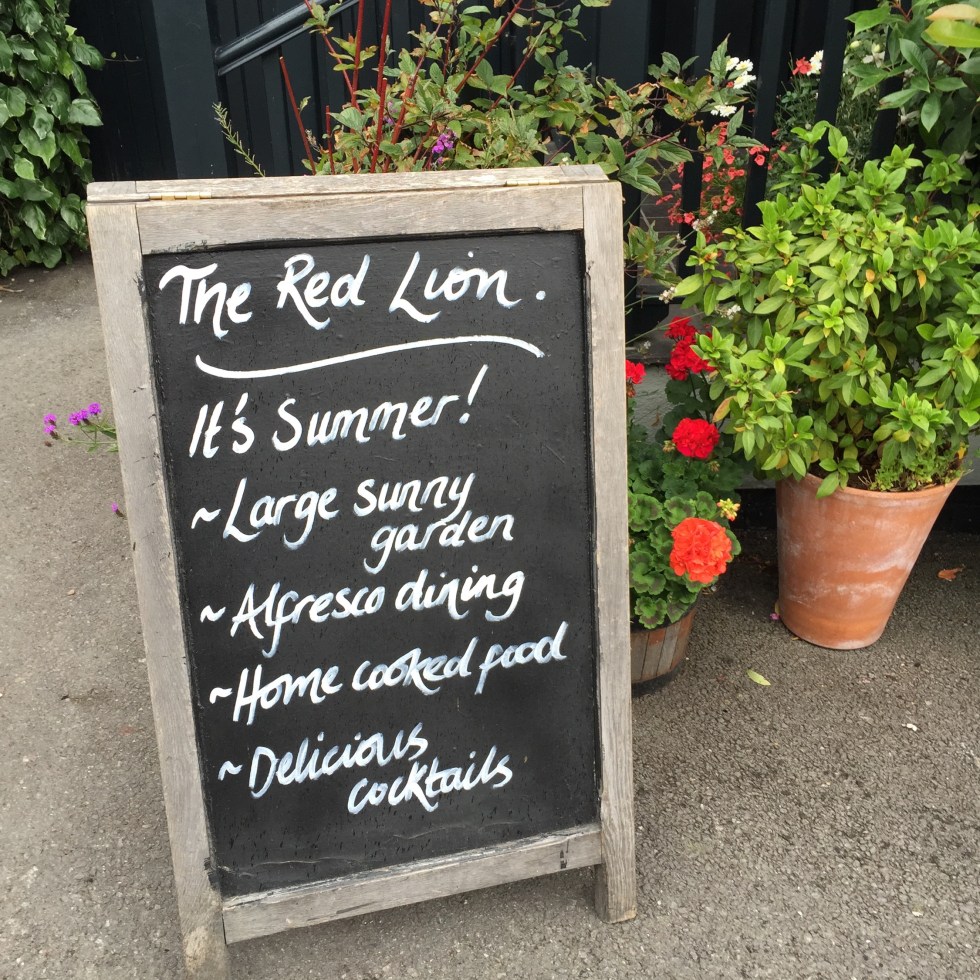 The Red Lion.
It's Summer!
~Large sunny
garden
~Alfresco dining
~Home cooked food
~Delicious
cocktails